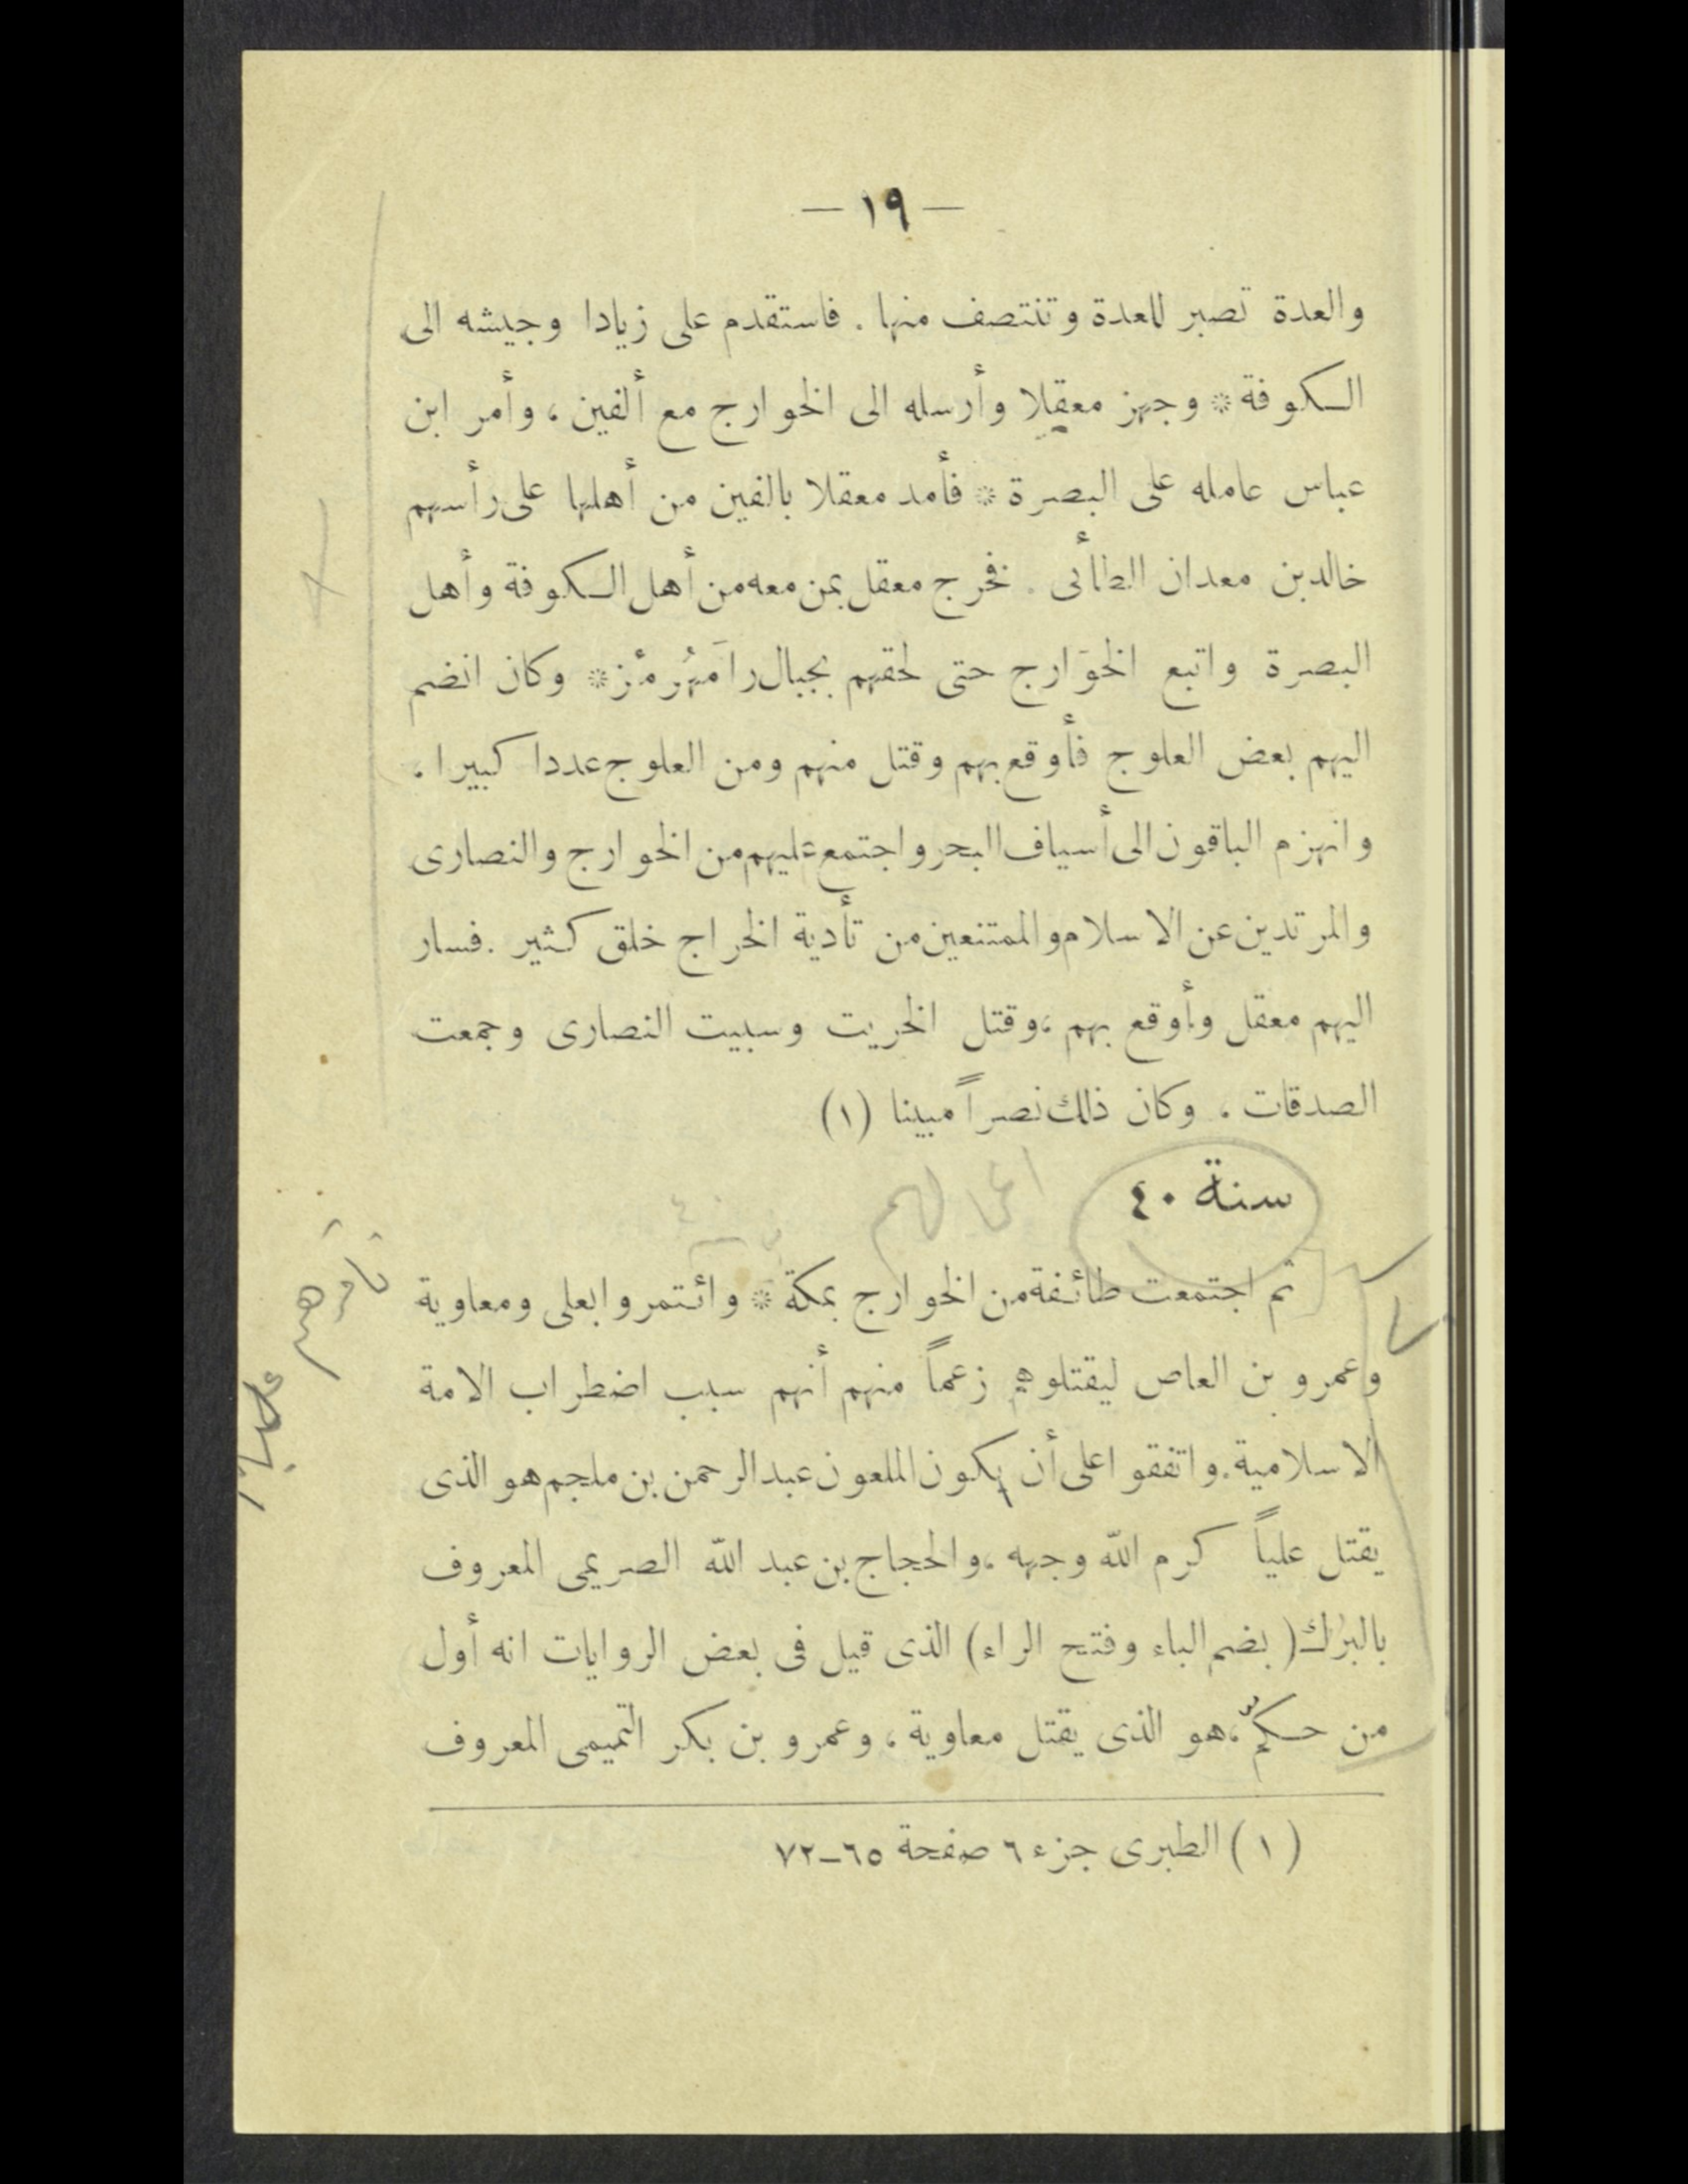 — ١٩ —
والعدة تصبر للعدة وتنتصف منها . فاستقدم على زيادا وجيشه الى
الكوفة * وجهز معقلا وأرسله الى الخوارج مع ألفين ، وأمر ابن
عباس عامله على البصرة * فأمد معقلا بالفين من أهلها على رأسهم
خالد بن معدان الطأئى . فخرج معقل بمن معه من أهل الكوفة وأهل
البصرة واتبع الخوَارج حتى لحقهم بجبال رامَهُرمْز * وكان انضم
اليهم بعض العلوج فأوقع بهم وقتل منهم ومن العلوج عددا كبيرا .
وانهزم الباقون الى أسياف البحر واجتمع عليهم من الخوارج والنصارى
والمرتدين عن الاسلام والممتنعين من تأدية الخراج خلق كثير . فسار
اليهم معقل وأوقع بهم ، وقتل الخريت وسبيت النصارى وجمعت
الصدقات . وكان ذلك نصراً مبينا (١)
سنة ٤٠
ثم اجتمعت طائفة من الخوارج بمكة * وائتمروا بعلى ومعاوية
وعمرو بن العاص ليقتلوهم زعماً منهم أنهم سبب اضطراب الامة
الاسلامية . واتفقوا على أن يكون الملعون عبد الرحمن بن ملجم هو الذى
يقتل علياً كرم الله وجهه ، والحجاج بن عبد الله الصريمى المعروف
بالبرك ( بضم الباء وفتح الراء ) الذى قيل فى بعض الروايات انه أول
من حكّم ، هو الذى يقتل معاوية ، وعمرو بن بكر التميمى المعروف
( ١ ) الطبرى جزء ٦ صفحة ٦٥-٧٢